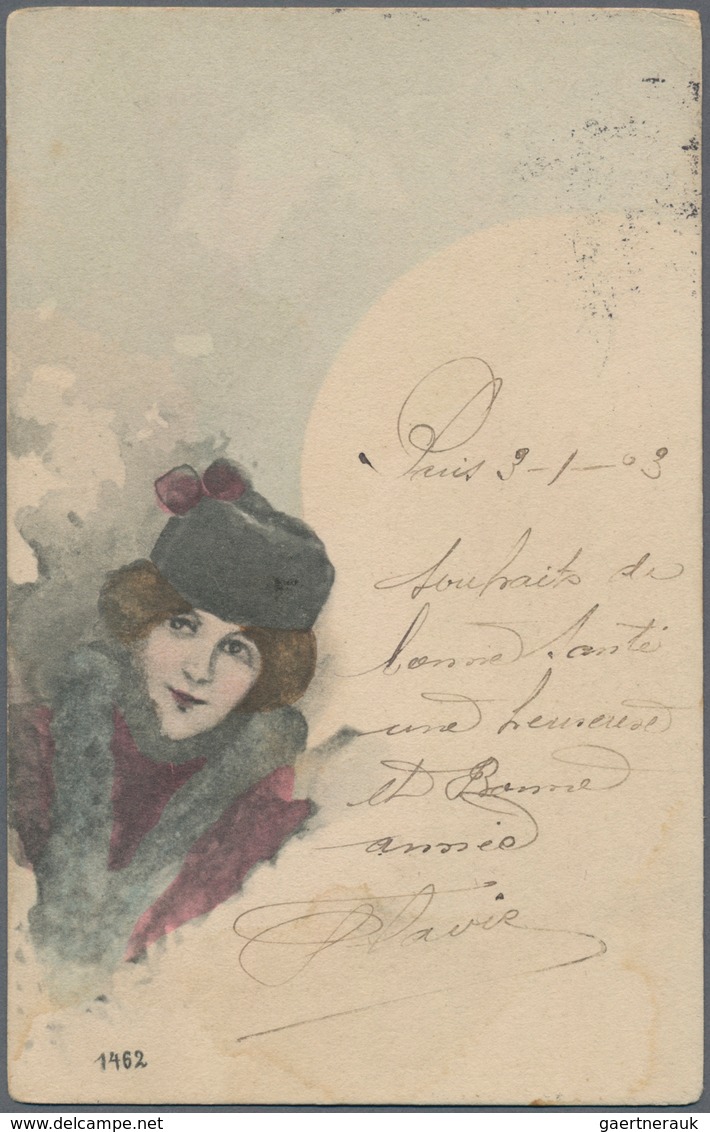 Paris 3-1-03
Souhaits de
bonne Santé
une heureuse
et Bonne
année
1462
delcampe.net
gaertnerauk